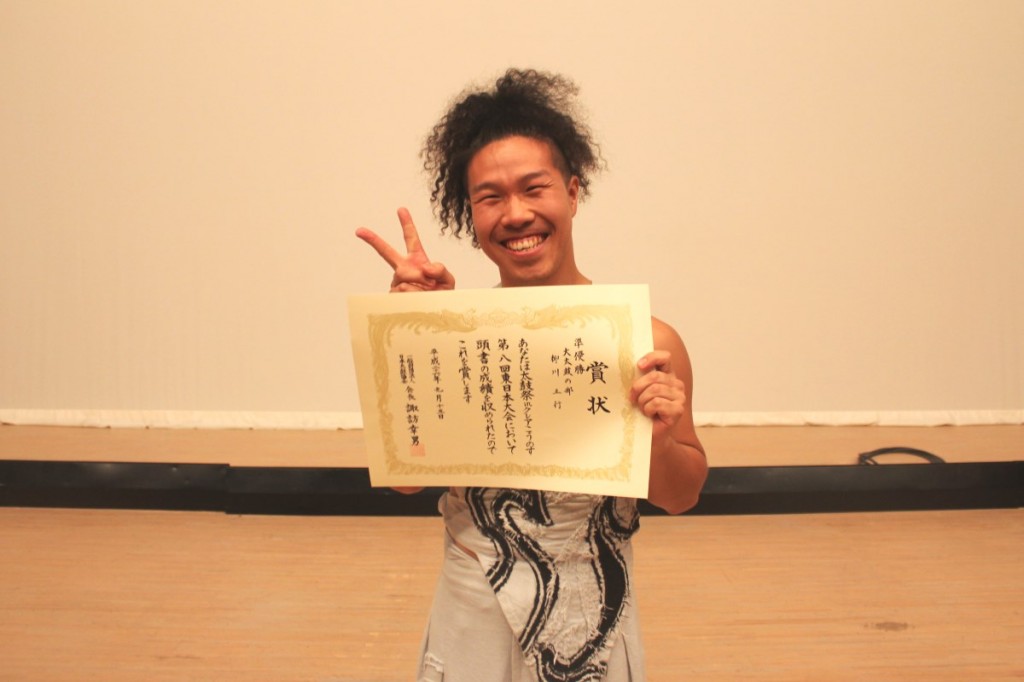 賞状
準優勝
大太鼓の部
柳川立行
あなたは太鼓祭inクレアこうのす
第八回東日本大会において
頭書の成績を収められたので
これを賞します
平成
会長 諏訪幸男